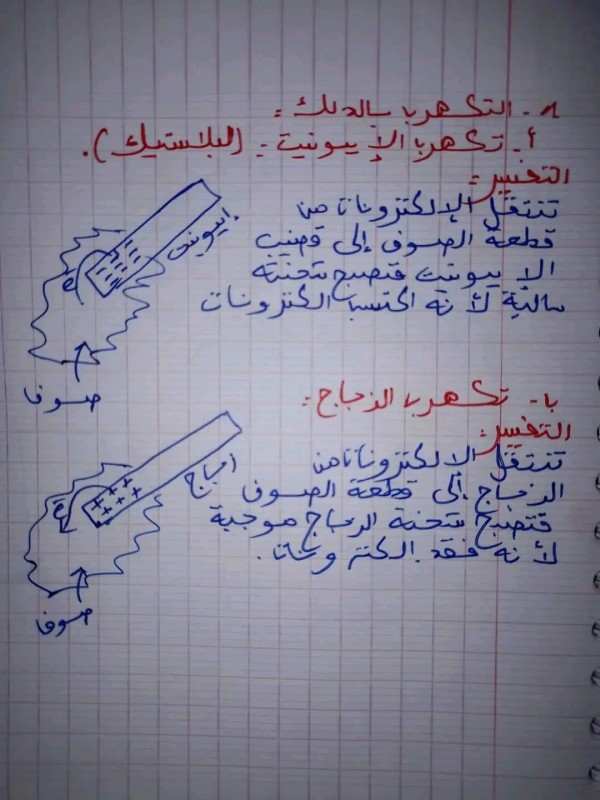 1- التكهرب بالدلك :
أ- تكهرب الإيبونيت - (البلاستيك).
التفسير:
تنتقل الإلكترونات من
قطعة الصوف إلى قضيب
الايبونيت فتصبح شحنته
سالبة لأنه اكتسب الكترونات
إيبونيت
e
صوف
ب- تكهرب الزجاج :
التفسير:
تنتقل الالكترونات من
الزجاج إلى قطعة الصوف
فتصبح شحنة الزجاج موجبة
لأنه فقد الكترونات.
زجاج
e
صوف